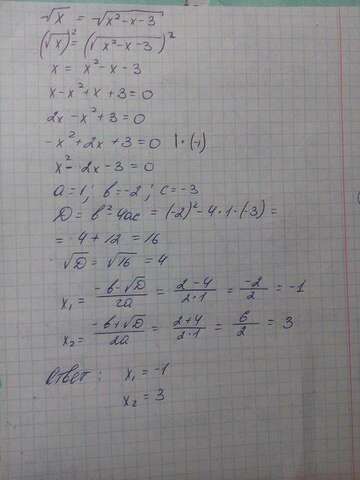 √x = √x²-x-3
(√x)² = (√x²-x-3)²
x = x²-x-3
x-x²+x+3=0
2x-x²+3=0
-x²+2x+3=0 |·(-1)
x²-2x-3=0
a=1; b=-2; c=-3
D = b²-4ac = (-2)²-4·1·(-3) =
= 4+12 = 16
√D = √16 = 4
x₁ = (-b-√D)/2a = (2-4)/2·1 = -2/2 = -1
x₂ = (-b+√D)/2a = (2+4)/2·1 = 6/2 = 3
Ответ: x₁ = -1
x₂ = 3